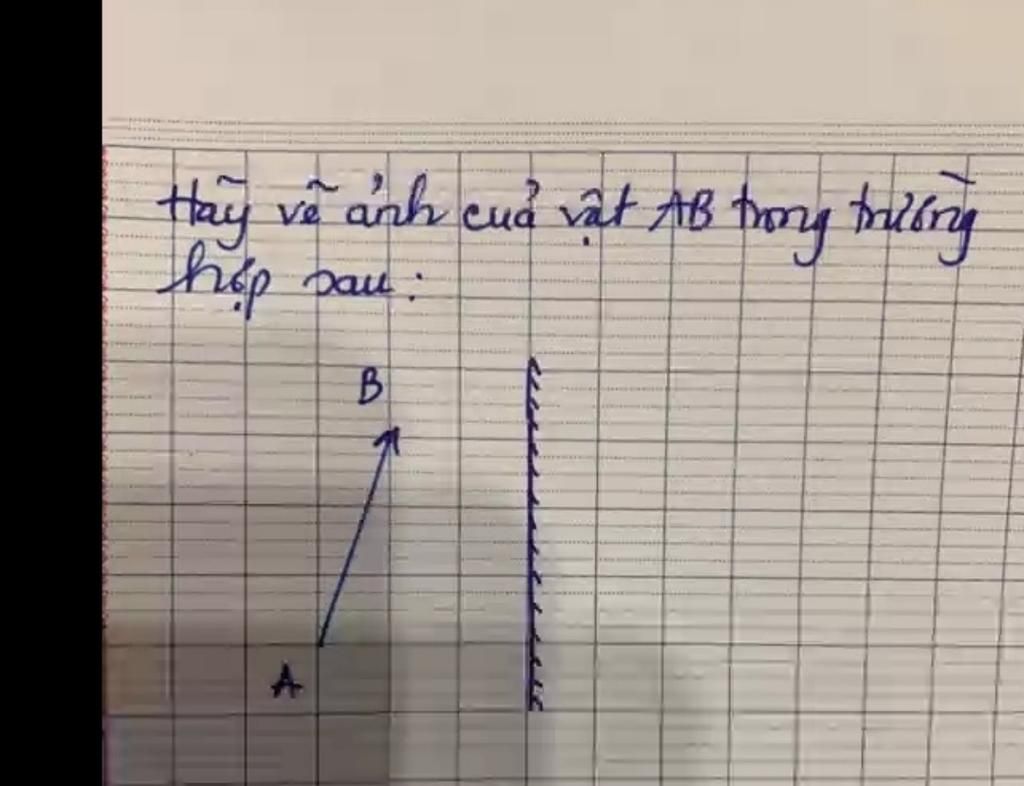 Hãy vẽ ảnh của vật AB trong trường
hợp sau:
B
A